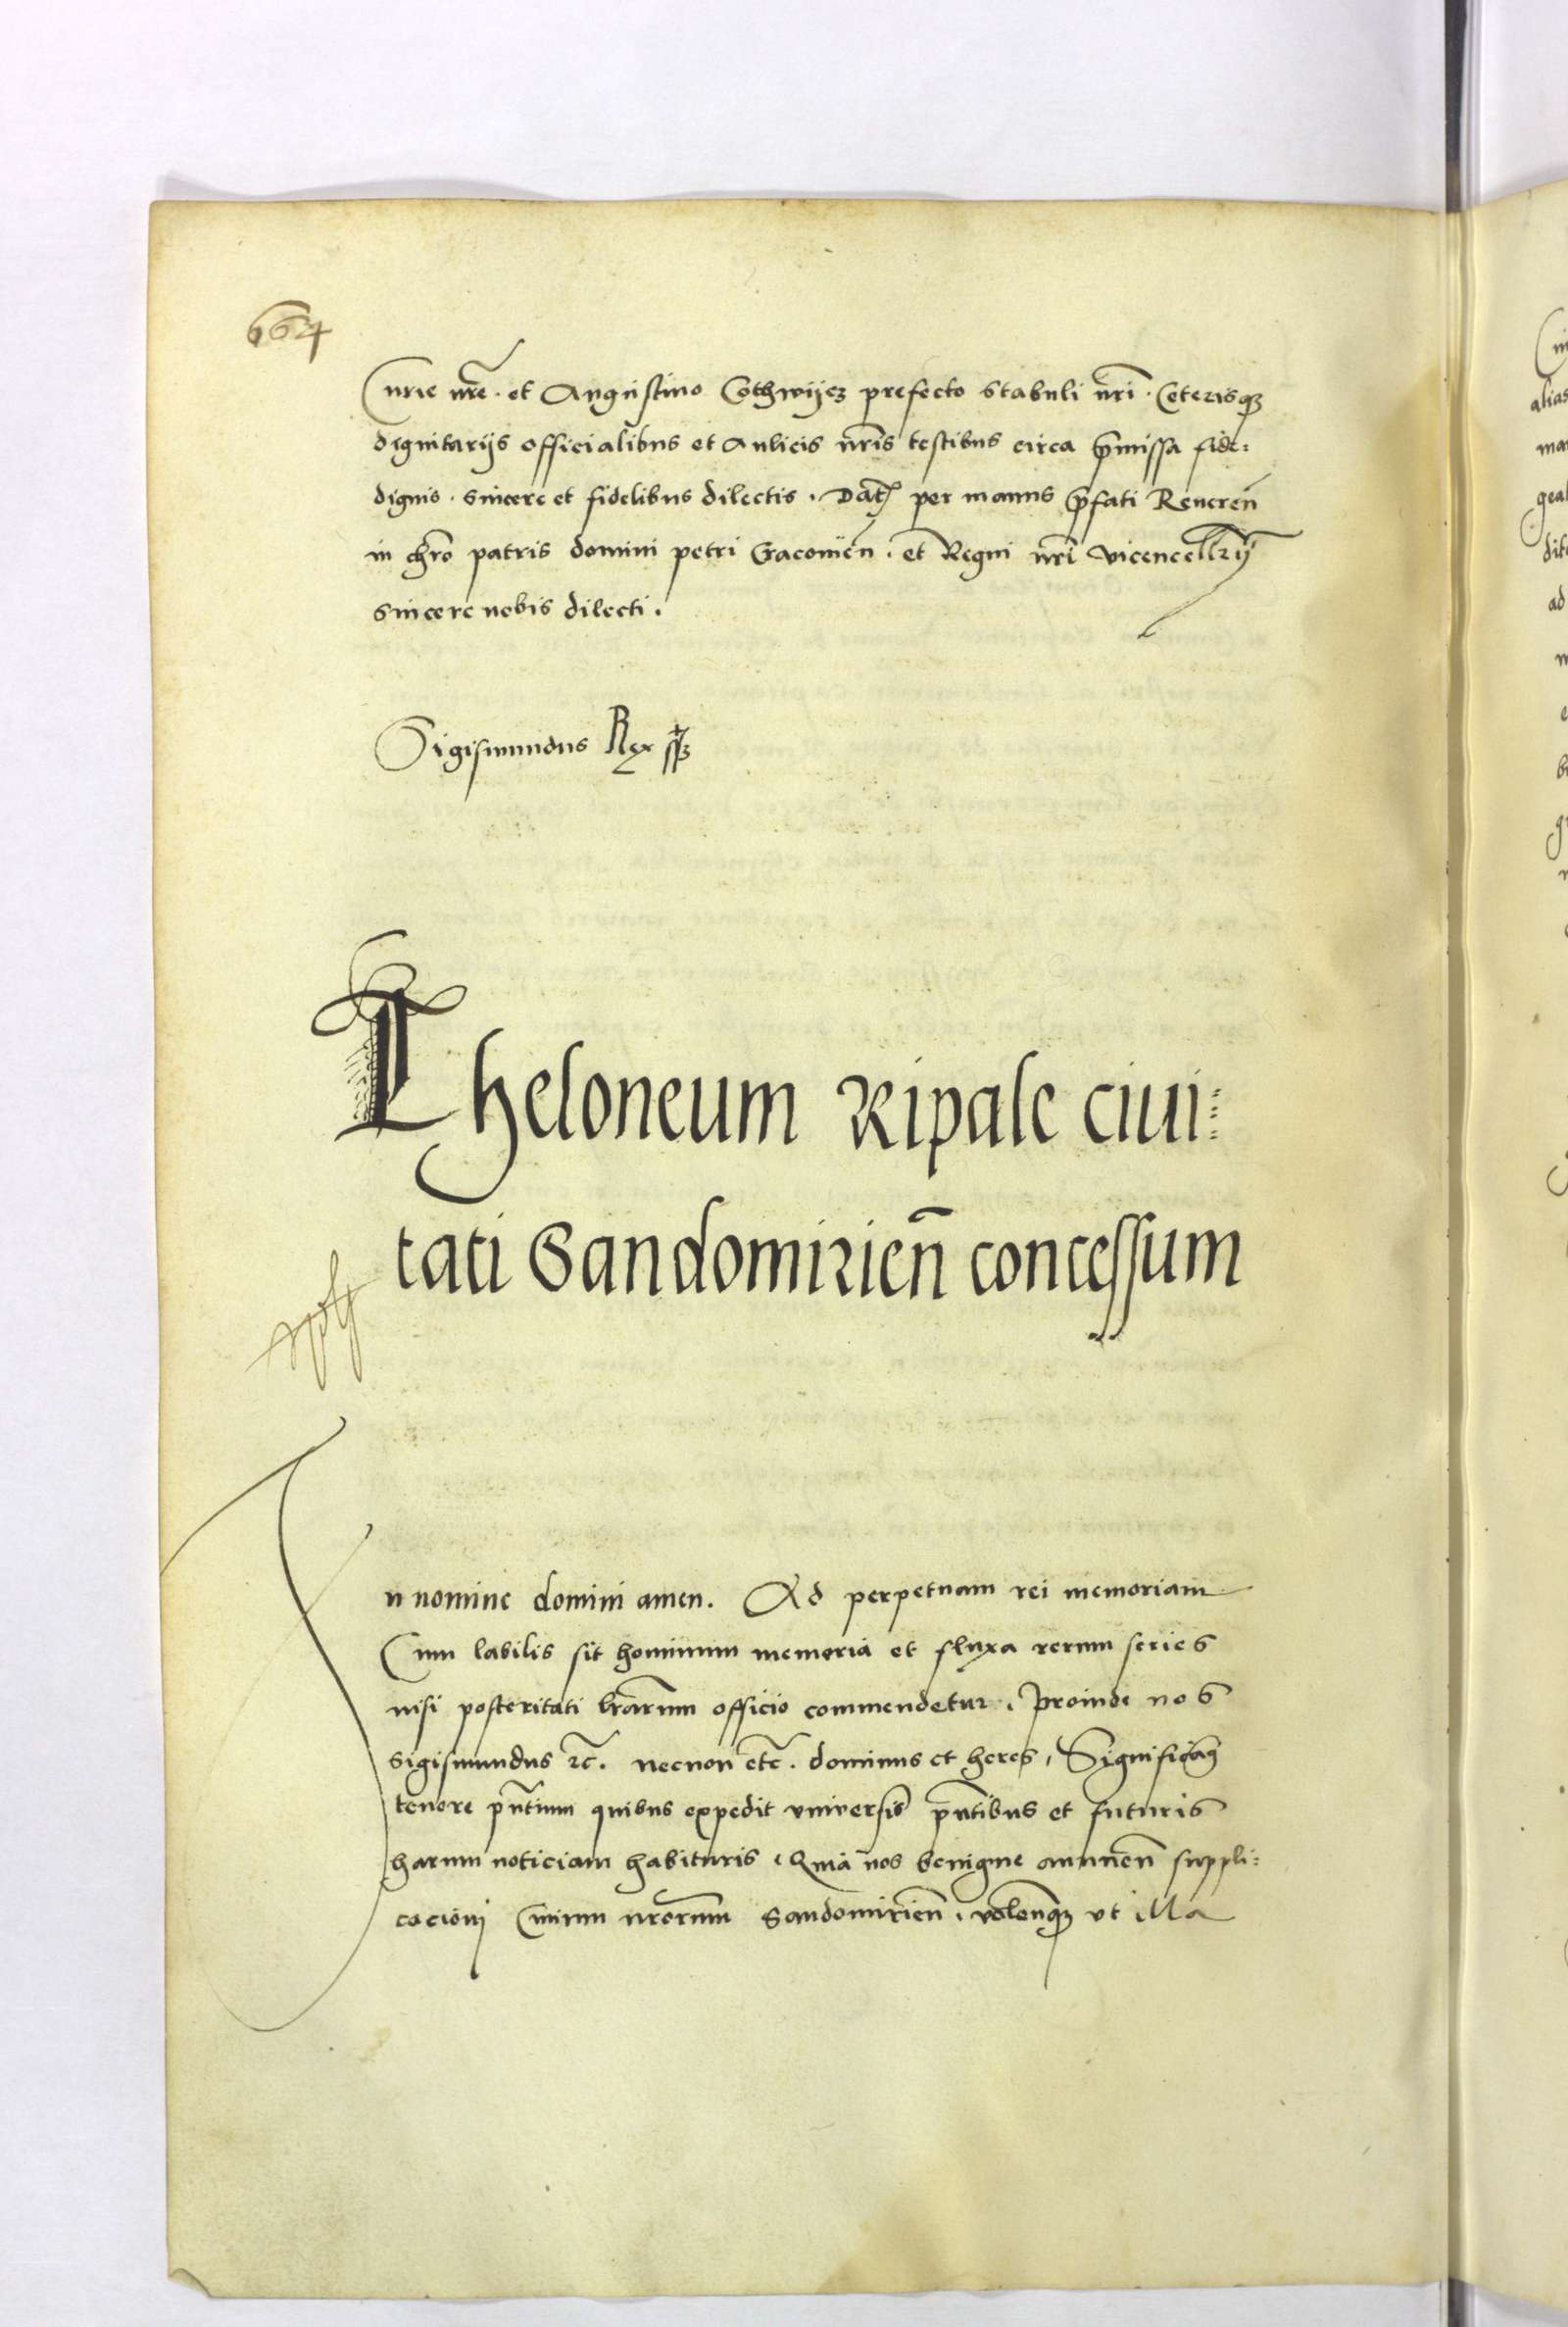 664
Curie nr̃e · et Augustino Cothwijcz prefecto stabuli nr̃i · Ceterisqꝫ
dignitarijs officialibus et Aulicis nr̃is testibus circa p̃missa fide:
dignis · sincere et fidelibus dilectis · Dat̃ per manus p̃fati Reueren̄
in chr̃o patris domini petri Cracouien̄ · et Regni nr̃i vicencellr̃ij
sincere nobis dilecti ·
Sigismundus Rex sſꝫ
Theloneum Ripale ciui:
tati Sandomirien̄ concessum
In nomine domini amen. Ad perpetuam rei memoriam
Cum labilis sit hominum memoria et fluxa rerum series
nisi posteritati lr̃arum officio commendetur · Proinde nos
Sigismundus ꝛc̃. necnon etc̃. dominus et heres, Significam9
tenore pn̄tium quibus expedit vniuersis pn̄tibus et futuris
harum noticiam habituris · Quia nos benigne annuen̄ suppli:
cacionj Ciuium nr̃orum Sandomirien̄ · volen̄qꝫ vt illa